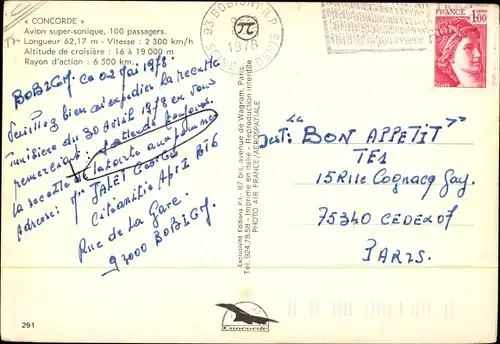 « CONCORDE »
Avion super-sonique, 100 passagers.
Longueur 62,17 m - Vitesse : 2 300 km/h
Altitude de croisière : 16 à 19 000 m
Rayon d'action : 6 500 km.
BOBIGNY. Ce 02 Mai 1978.
Veuillez bien m'expedier la recette
Tunisière du 30 Avril 1978 en vous
remerciant : j'attends toujours
la recette de la tarte aux pommes
Adresse : Mr JALET Georges
Citeamitié Apt I Bt 6
Rue de La Gare.
93000 BOBIGNY.
93 BOBIGNY R.P.
1978
SEINE ST DENIS
FRANCE
1,00
Jest : "BON APPETIT"
TF1
15 Rue Cognacq Jay.
75340 CEDEX 07
PARIS.
Exclusivité Editions P.I. 87 bis, avenue de Wagram, Paris
Tél. 924.78.58 - Imprimé en Italie - Reproduction interdite
PHOTO AIR FRANCE/AEROSPATIALE
Concorde
291